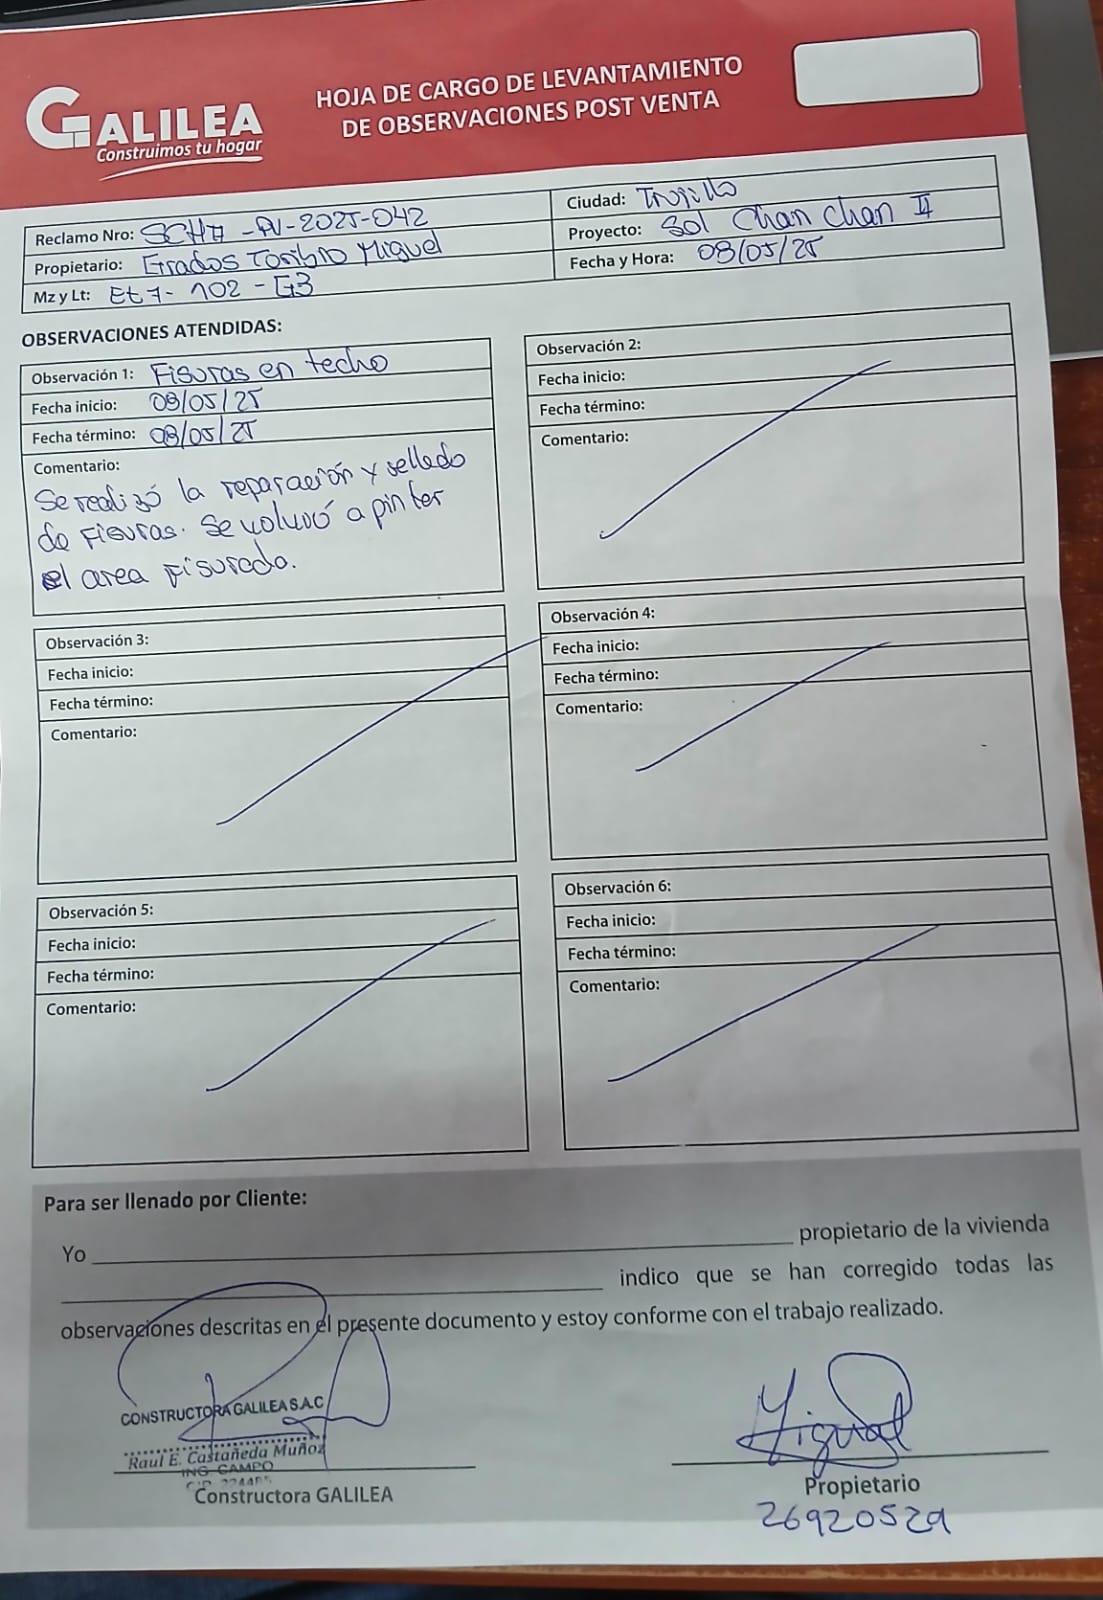 GALILEA
Construimos tu hogar
HOJA DE CARGO DE LEVANTAMIENTO
DE OBSERVACIONES POST VENTA
Reclamo Nro: SCH7-PV-2025-042
Ciudad: Trujillo
Propietario: Grados Toribio Miguel
Proyecto: Sol Chan Chan II
Mz y Lt: Et 7- 102 - G3
Fecha y Hora: 08/05/25
OBSERVACIONES ATENDIDAS:
Observación 1: Fisuras en techo
Fecha inicio: 08/05/25
Fecha término: 08/05/25
Comentario:
Se realizó la reparación y sellado
de Fisuras. Se volvió a pintar
el area Fisurada.
Observación 2:
Fecha inicio:
Fecha término:
Comentario:
Observación 3:
Fecha inicio:
Fecha término:
Comentario:
Observación 4:
Fecha inicio:
Fecha término:
Comentario:
Observación 5:
Fecha inicio:
Fecha término:
Comentario:
Observación 6:
Fecha inicio:
Fecha término:
Comentario:
Para ser llenado por Cliente:
Yo propietario de la vivienda
indico que se han corregido todas las
observaciones descritas en el presente documento y estoy conforme con el trabajo realizado.
CONSTRUCTORA GALILEA S.A.C
Raul E. Castañeda Muñoz
ING. CAMPO
Constructora GALILEA
Miguel
Propietario
26920529